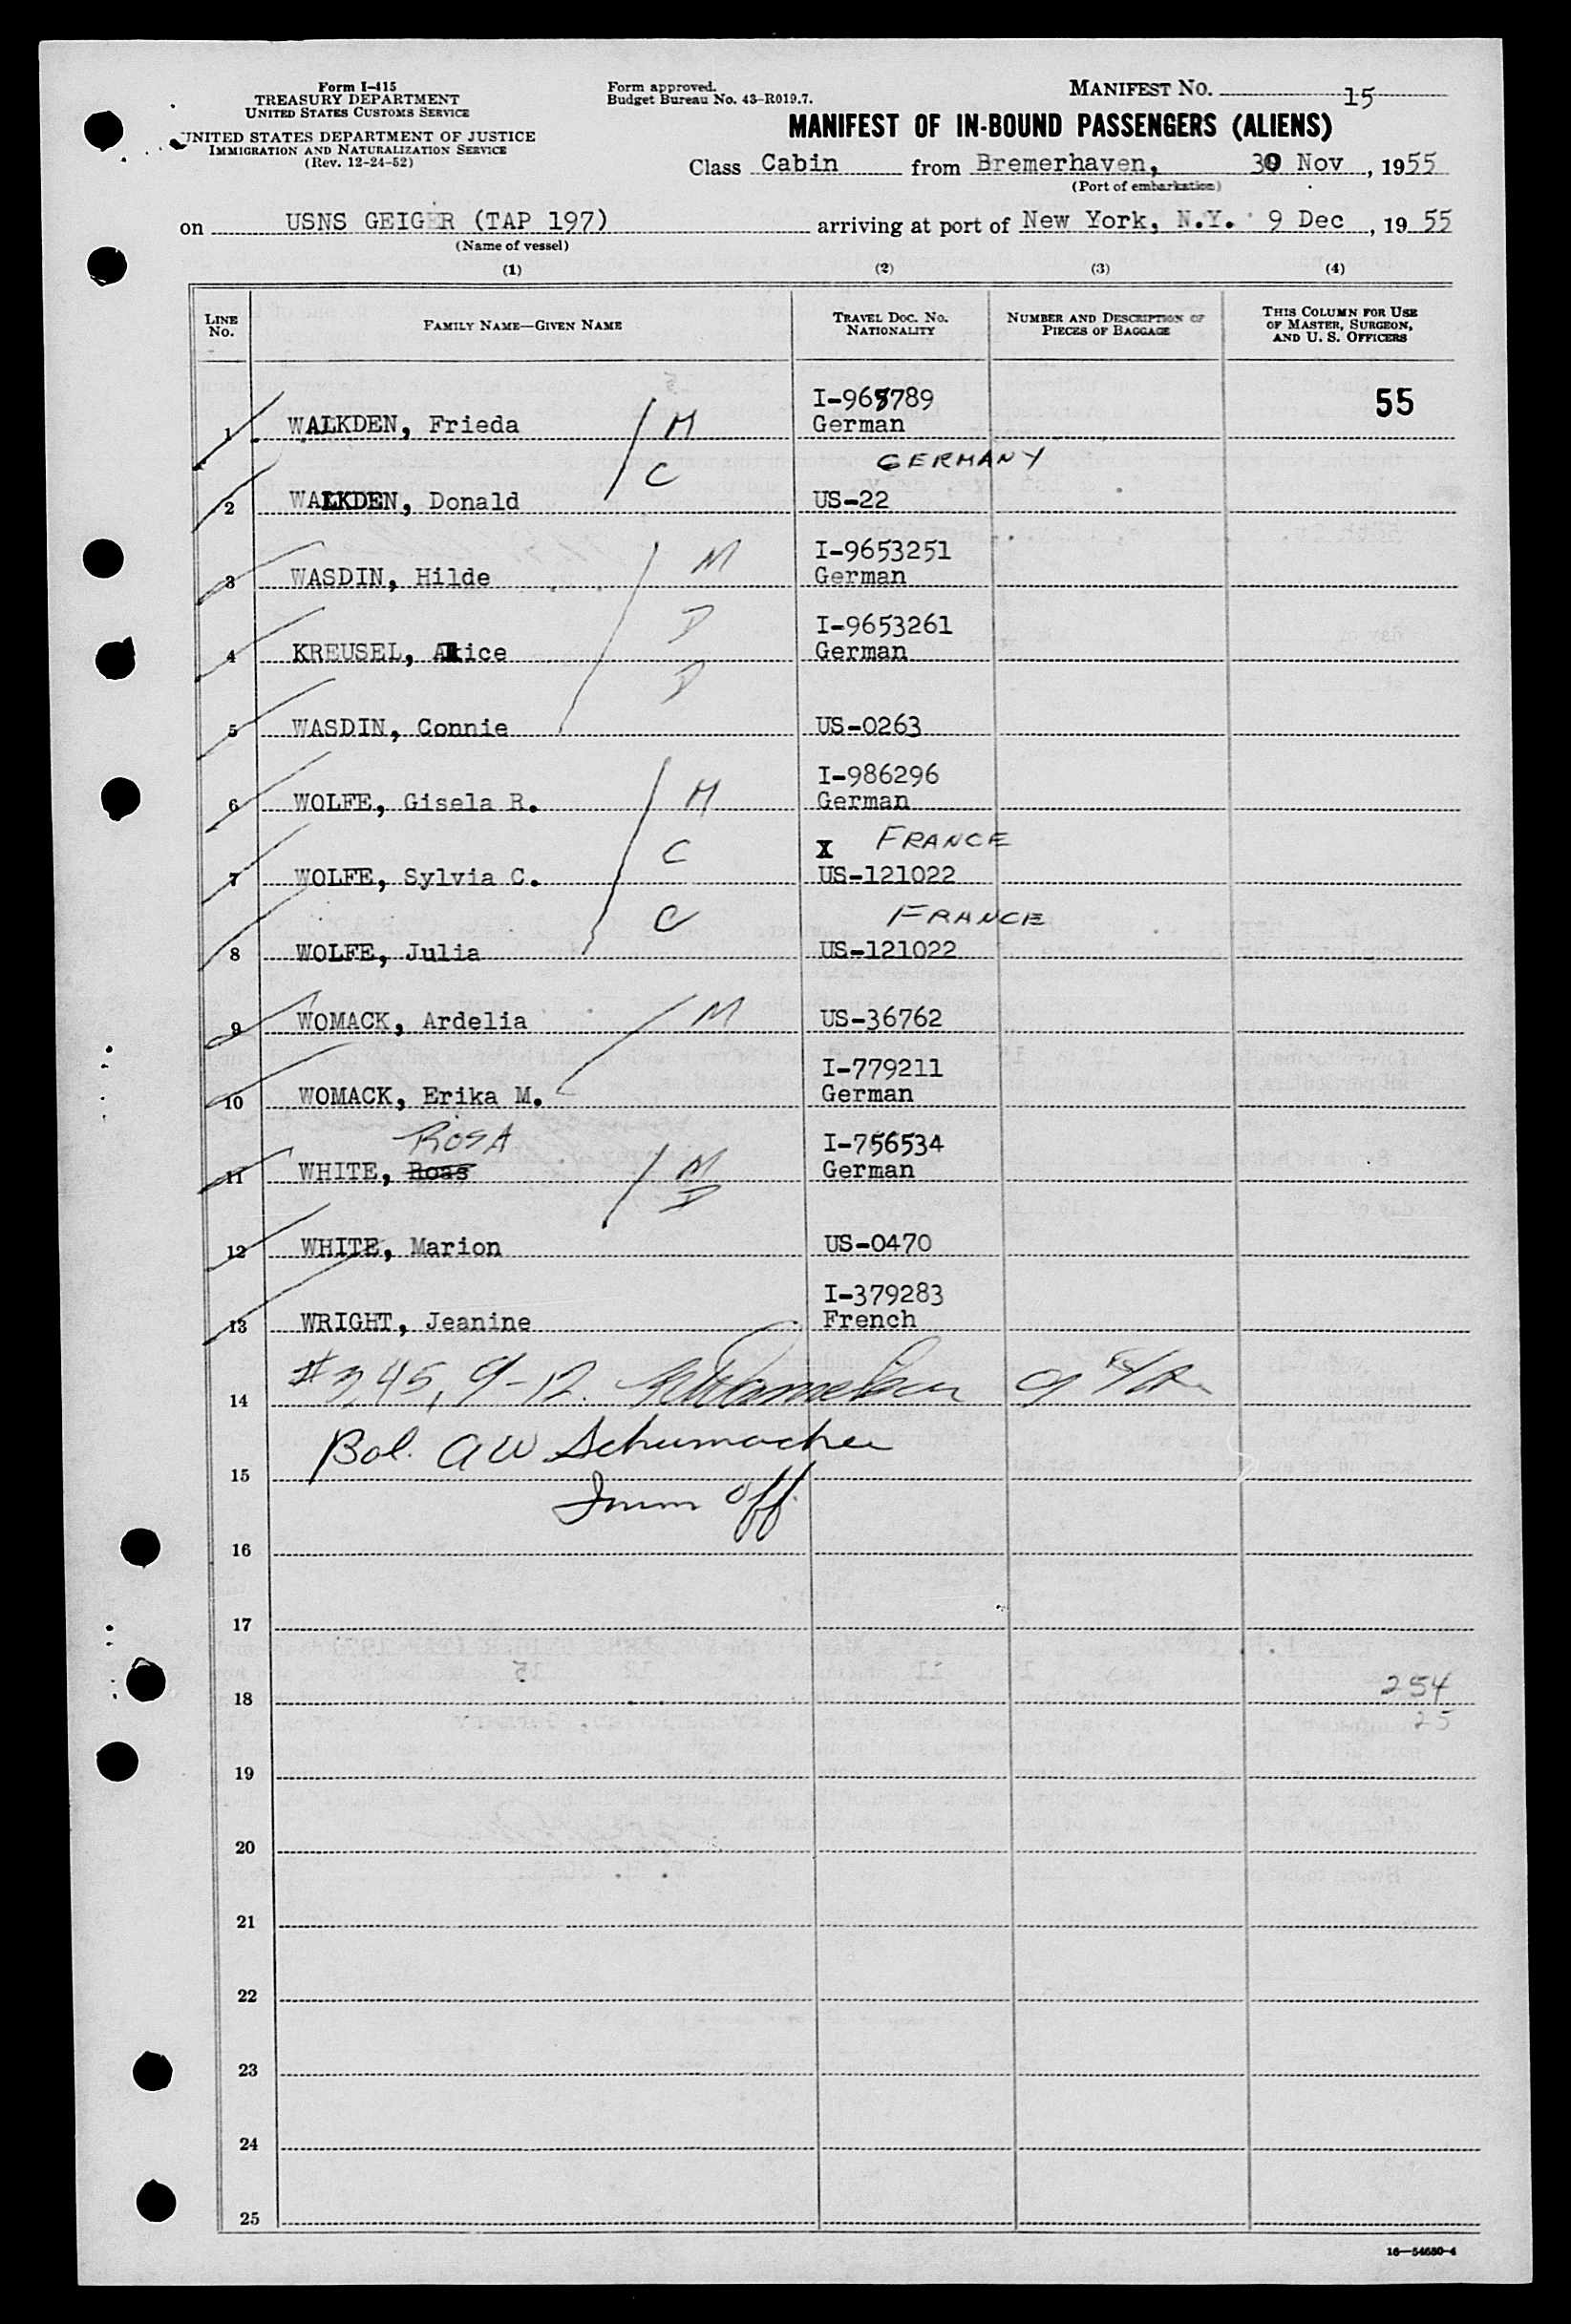 Form I-415
TREASURY DEPARTMENT
UNITED STATES CUSTOMS SERVICE
UNITED STATES DEPARTMENT OF JUSTICE
IMMIGRATION AND NATURALIZATION SERVICE
(Rev. 12-24-52)
Form approved.
Budget Bureau No. 43-R019.7.
MANIFEST NO. 15
MANIFEST OF IN-BOUND PASSENGERS (ALIENS)
Class Cabin from Bremerhaven, 30 Nov, 1955
(Port of embarkation)
on USNS GEIGER (TAP 197) arriving at port of New York, N.Y. 9 Dec, 1955
(Name of vessel)
(1) (2) (3) (4)
LINE NO.
FAMILY NAME—GIVEN NAME
TRAVEL DOC. NO. NATIONALITY
NUMBER AND DESCRIPTION OF PIECES OF BAGGAGE
THIS COLUMN FOR USE OF MASTER, SURGEON, AND U. S. OFFICERS
I-968789 55
1 WALKDEN, Frieda M German
C GERMANY
2 WALKDEN, Donald US-22
I-9653251
3 WASDIN, Hilde M German
D I-9653261
4 KREUSEL, Alice German
D
5 WASDIN, Connie US-0263
I-986296
6 WOLFE, Gisela R. M German
C X FRANCE
7 WOLFE, Sylvia C. US-121022
C FRANCE
8 WOLFE, Julia US-121022
9 WOMACK, Ardelia M US-36762
I-779211
10 WOMACK, Erika M. German
ROSA I-756534
11 WHITE, Roas M German
D
12 WHITE, Marion US-0470
I-379283
13 WRIGHT, Jeanine French
14 #345, 9-12.
15 Bal. A W Schumacher
Imm Off.
16
17
18 254
25
19
20
21
22
23
24
25
16—54680-4